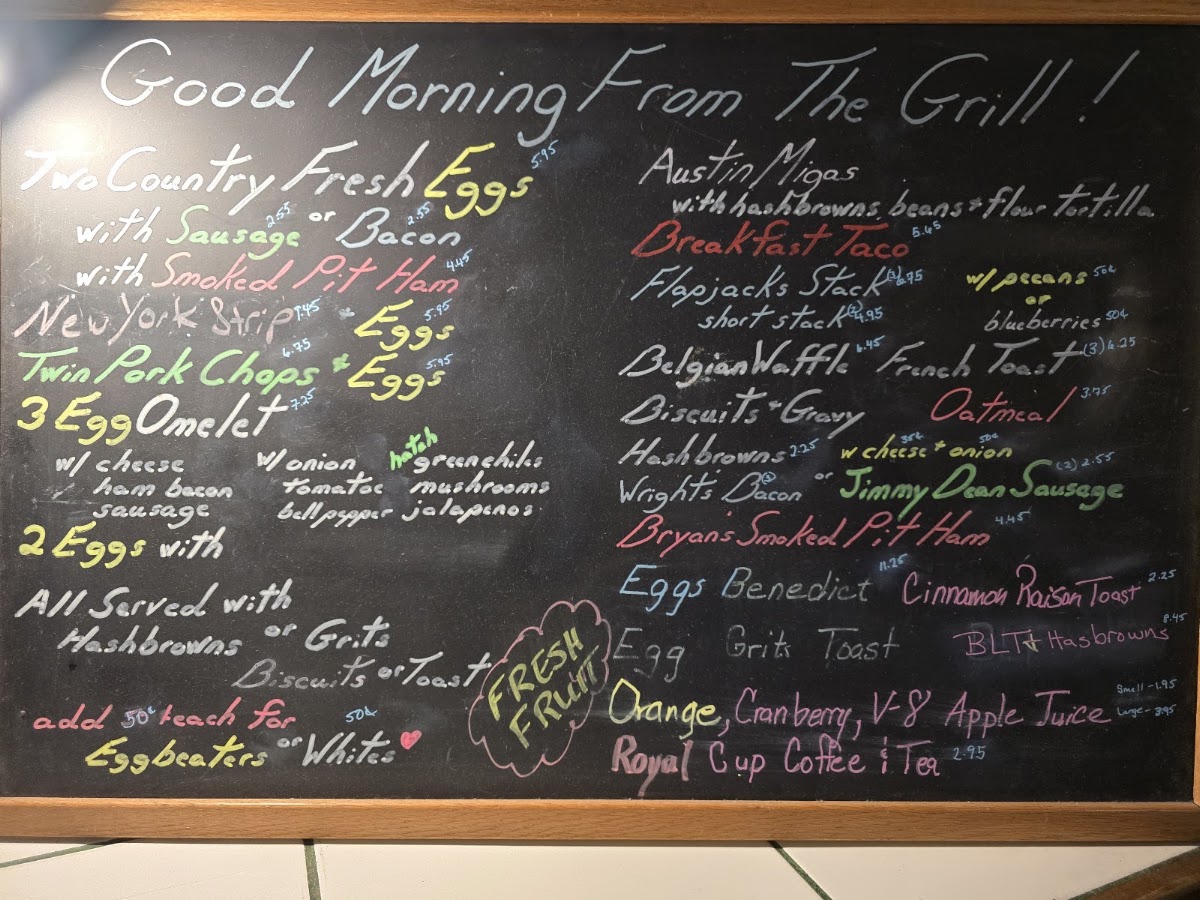 Good Morning From The Grill !
Two Country Fresh Eggs 5.95
with Sausage 2.55 or Bacon 2.55
with Smoked Pit Ham 4.45
New York Strip + Eggs 5.95
Twin Pork Chops 6.75 + Eggs 5.95
3 Egg Omelet 7.25
w/ cheese w/ onion hatch green chiles
ham bacon tomatoe mushrooms
sausage bell pepper jalapenos
2 Eggs with
All Served with
Hashbrowns or Grits
Biscuits or Toast
add 50¢ each for 50¢
Eggbeaters or Whites
FRESH
FRUIT
Austin Migas
with hashbrowns, beans + flour tortilla
Breakfast Taco 5.45
Flapjacks Stack (3) 6.75 w/ pecans 50¢
or
short stack (2) 4.95 blueberries 50¢
Belgian Waffle 6.45 French Toast (3) 6.25
Biscuits + Gravy Oatmeal 3.75
Hashbrowns 2.25 w cheese 35¢ + onion 50¢
Wrights Bacon (3) or Jimmy Dean Sausage (2) 2.55
Bryan's Smoked Pit Ham 4.45
Eggs Benedict 11.25 Cinnamon Raison Toast 2.25
Egg Grits Toast BLT + Hasbrowns 8.45
Orange, Cranberry, V-8 Apple Juice Small - 1.95
Large - 3.95
Royal Cup Coffee & Tea 2.95